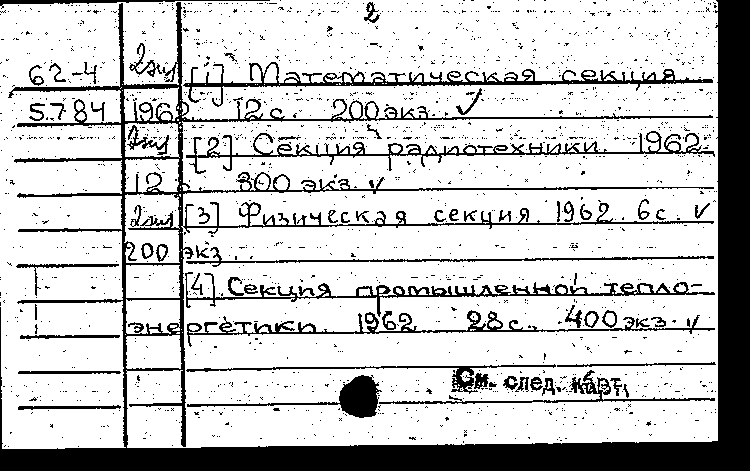 2
62-4 2 экз [1]. Математическая секция.
5784 1962. 12 с. 200 экз. ✓
2 экз [2]. Секция радиотехники. 1962.
12 с. 300 экз. ✓
2 экз [3] Физическая секция. 1962. 6 с. ✓
200 экз.
[4]. Секция промышленной тепло-
энергетики. 1962 28 с. 400 экз. ✓
См. след. карт.